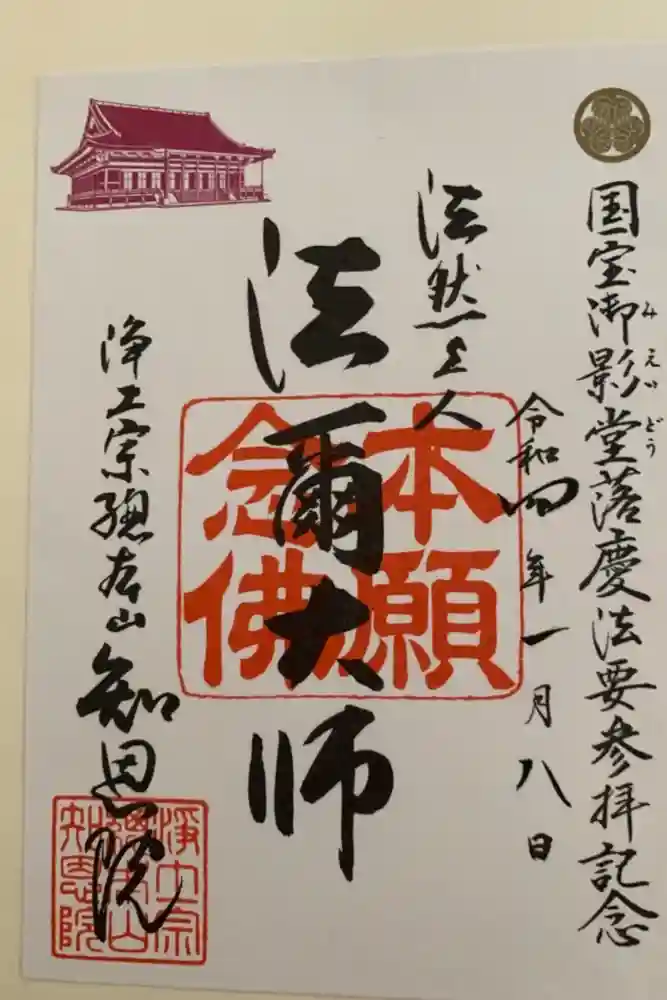 国宝御影堂落慶法要参拝記念
みえいどう
令和四年一月八日
法然上人
法爾大師
本願
念佛
浄土宗總本山知恩院
浄土宗
總本山
知恩院